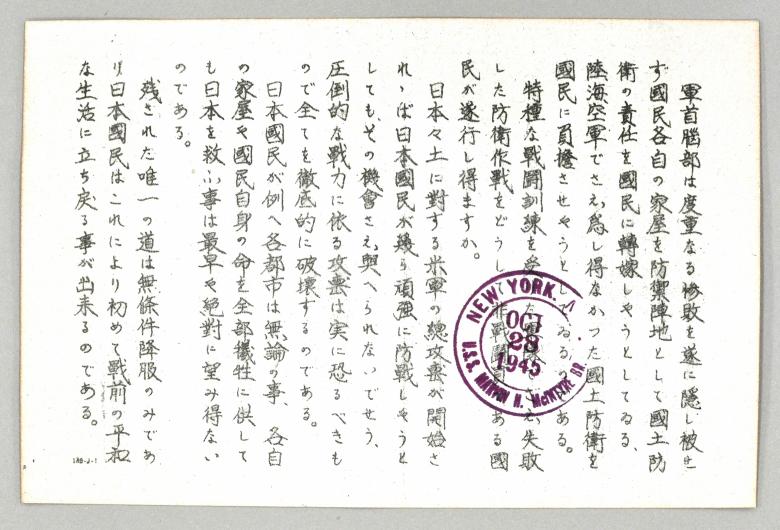 軍首脳部は度重なる惨敗を遂に隠し被せ
ず國民各自の家屋を防禦陣地として國土防
衛の責任を國民に轉嫁しやうとしてゐる、
陸海空軍でさえ爲し得なかつた國土防衛を
國民に負擔させやうとしてゐるのである。
特種な戰闘訓練を え失敗
した防衛作戰をどうして 戰闘員である國
民が遂行し得ますか。
日本々土に對する米軍の總攻撃が開始さ
れゝば日本國民が幾ら頑強に防戰しやうと
しても、その機會さえ與へられないでせう、
圧倒的な戰力に依る攻撃は実に恐るべきも
ので全てを徹底的に破壊するのである。
日本國民が例へ各都市は無論の事、各自
の家屋や國民自身の命を全部犠牲に供して
も日本を救ふ事は最早や絶對に望み得ない
のである。
残された唯一の道は無條件降服のみであ
り日本國民はこれにより初めて戰前の平和
な生活に立ち戻る事が出来るのである。
NEW YORK.
OCT
28
1945
U.S.S. MARVIN H. McINTYRE BR.